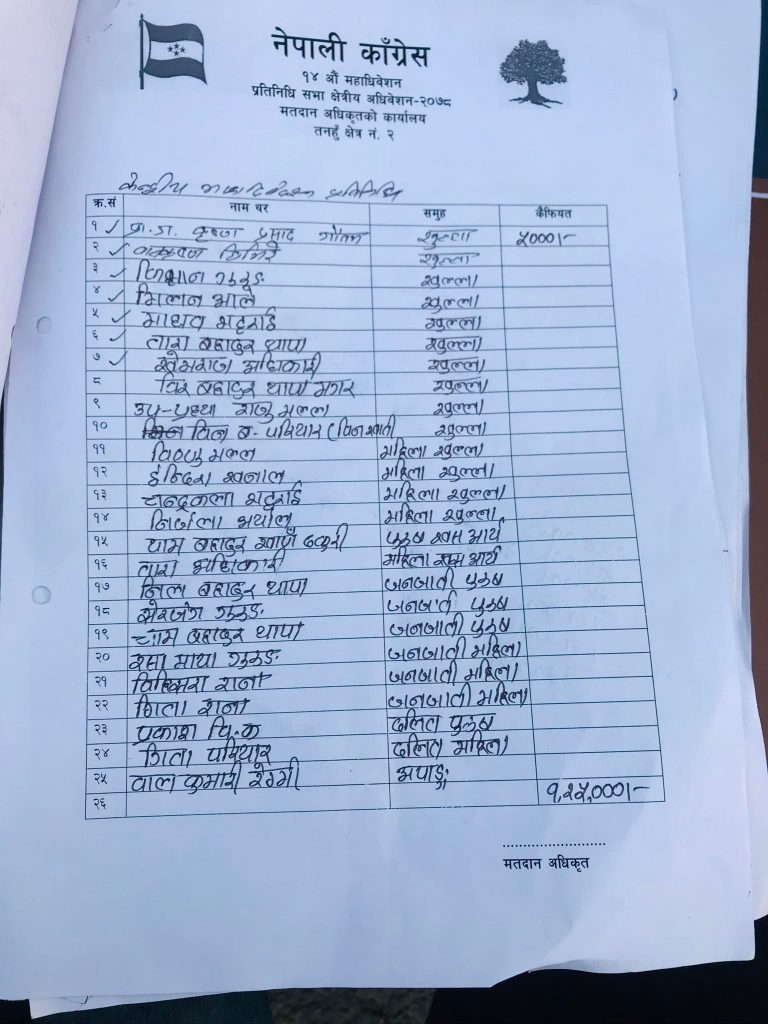 नेपाली काँग्रेस
१४ औं महाधिवेशन
प्रतिनिधि सभा क्षेत्रीय अधिवेशन-२०७८
मतदान अधिकृतको कार्यालय
तनहुँ क्षेत्र नं. २
केन्द्रीय महाधिवेशन प्रतिनिधि
क्र.सं नाम थर समुह कैफियत
१ प्रा.डा. कृष्ण प्रसाद गौतम खुल्ला ५०००।-
२ घिमिरे खुल्ला
३ गुरुङ खुल्ला
४ मिलन आले खुल्ला
५ माधव भट्टराई खुल्ला
६ तारा बहादुर थापा खुल्ला
७ खेमराज अधिकारी खुल्ला
८ विर बहादुर थापा मगर खुल्ला
९ उप-प्रा राजु मल्ल खुल्ला
१० विल ब. परियार ( खुल्ला
११ विष्णु मल्ल महिला खुल्ला
१२ ईन्दिरा खनाल महिला खुल्ला
१३ चन्द्रकला भट्टराई महिला खुल्ला
१४ निर्जला अर्याल महिला खुल्ला
१५ याम बहादुर खाँण ठकुरी पुरुष खस आर्य
१६ तारा अधिकारी महिला खस आर्य
१७ निल बहादुर थापा जनजाती पुरुष
१८ शेरजंग गुरुङ जनजाती पुरुष
१९ चोम बहादुर थापा जनजाती पुरुष
२० रुमा माया गुरुङ जनजाती महिला
२१ राना जनजाती महिला
२२ गिता राना जनजाती महिला
२३ प्रकाश वि.क दलित पुरुष
२४ गिता परियार दलित महिला
२५ वाल कुमारी रेग्मी अपाङ्ग
२६ १,२५,०००।-
मतदान अधिकृत